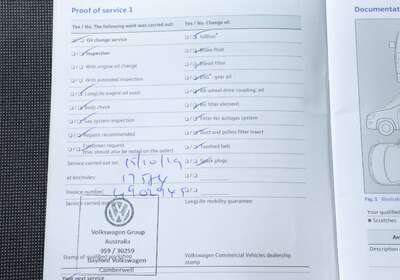 Proof of service 1
Documentat
Yes / No. The following work was carried out:
Yes / No. Change of:
Oil change service
AdBlue®
Inspection
Brake fluid
With engine oil change
Diesel filter
With extended inspection
DSG® gear oil
LongLife engine oil used
All-wheel drive coupling, oil
Body check
Air filter element
Gas system inspection
Filter for autogas system
Repairs recommended
Dust and pollen filter insert
Customer request
(this should also be noted on the order)
Toothed belt
Service carried out on: 15/10/19
Spark plugs
at km/miles:
Invoice number:
Service carried
LongLife mobility guarantee
Fig. 1
Your qualified
Scratches
Volkswagen Group
Australia
359 / 30259
Bayford Volkswagen
Camberwell
Stamp of qualified workshop
Volkswagen Commercial Vehicles dealership
stamp
Your next service